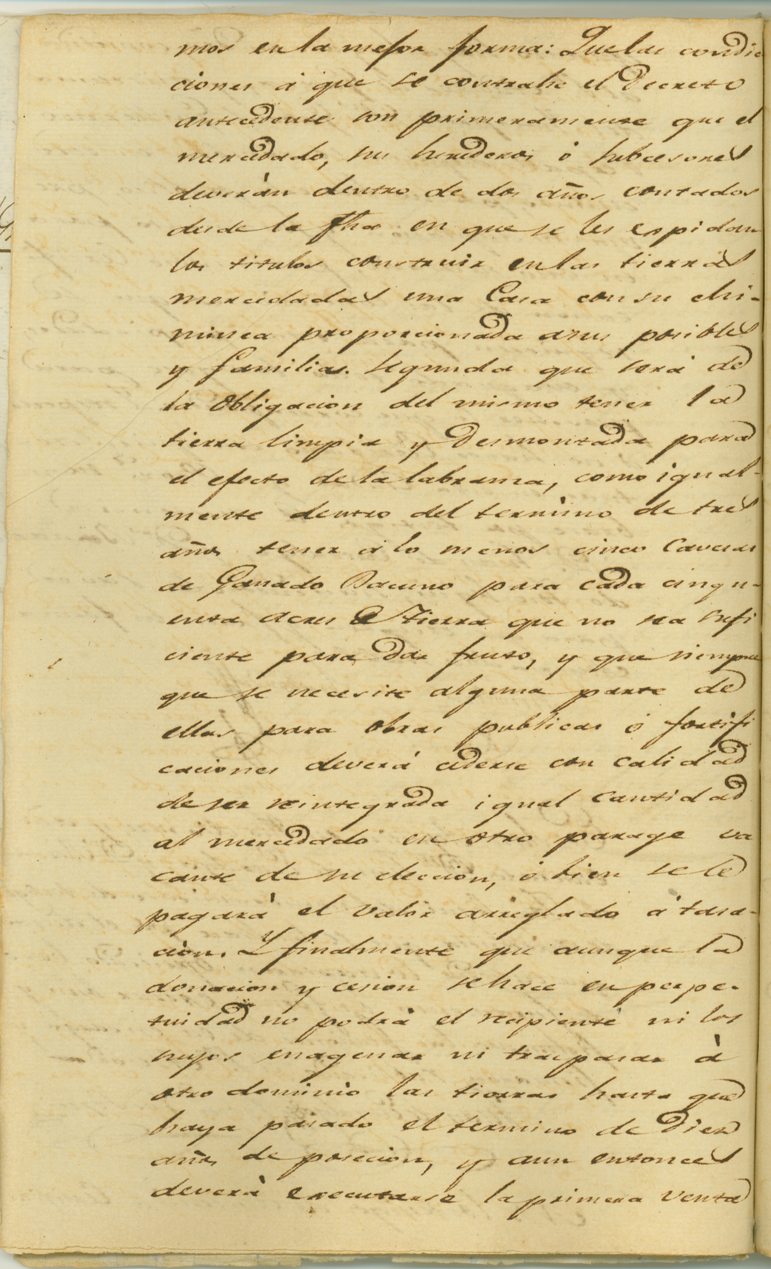 mos en la mejor forma: Que las condi
ciones á que se contrahe el Decreto
antecedente son primeramente que el
mercedado, sus herederos ó subcesores
deverán dentro de dos años contados
desde la fha en que se les espidan
los titulos construir en las tierras
mercedadas una Casa con su chi-
minea proporcionada a sus posibles
y familias. Segunda que será de
la Obligacion del mismo tener la
tierra limpia y Desmontada para
el efecto de la labranza, como igual-
mente dentro del termino de tres
años tener á lo menos cinco Cavezas
de Ganado Bacuno para cada cinqu-
enta acres de tierra que no sea sufi
ciente para dar fruto, y que siempre
que se necesite alguna parte de
ellas para obras publicas ó fortifi
caciones deverá cederse con calidad
de ser reintegrada igual cantidad
al mercedado en otro parage va
cante de su eleccion, ó bien se le
pagará el valor arreglado á tasa-
cion. Y finalmente que aunque la
donacion y cesion se hace en perpe-
tuidad no podrá el recipiente ni los
suyos enagenar ni traspasar á
otro dominio las tierras hasta que
haya pasado el termino de Diez
años de posecion, y aun entonces
deverá executarse la primera venta